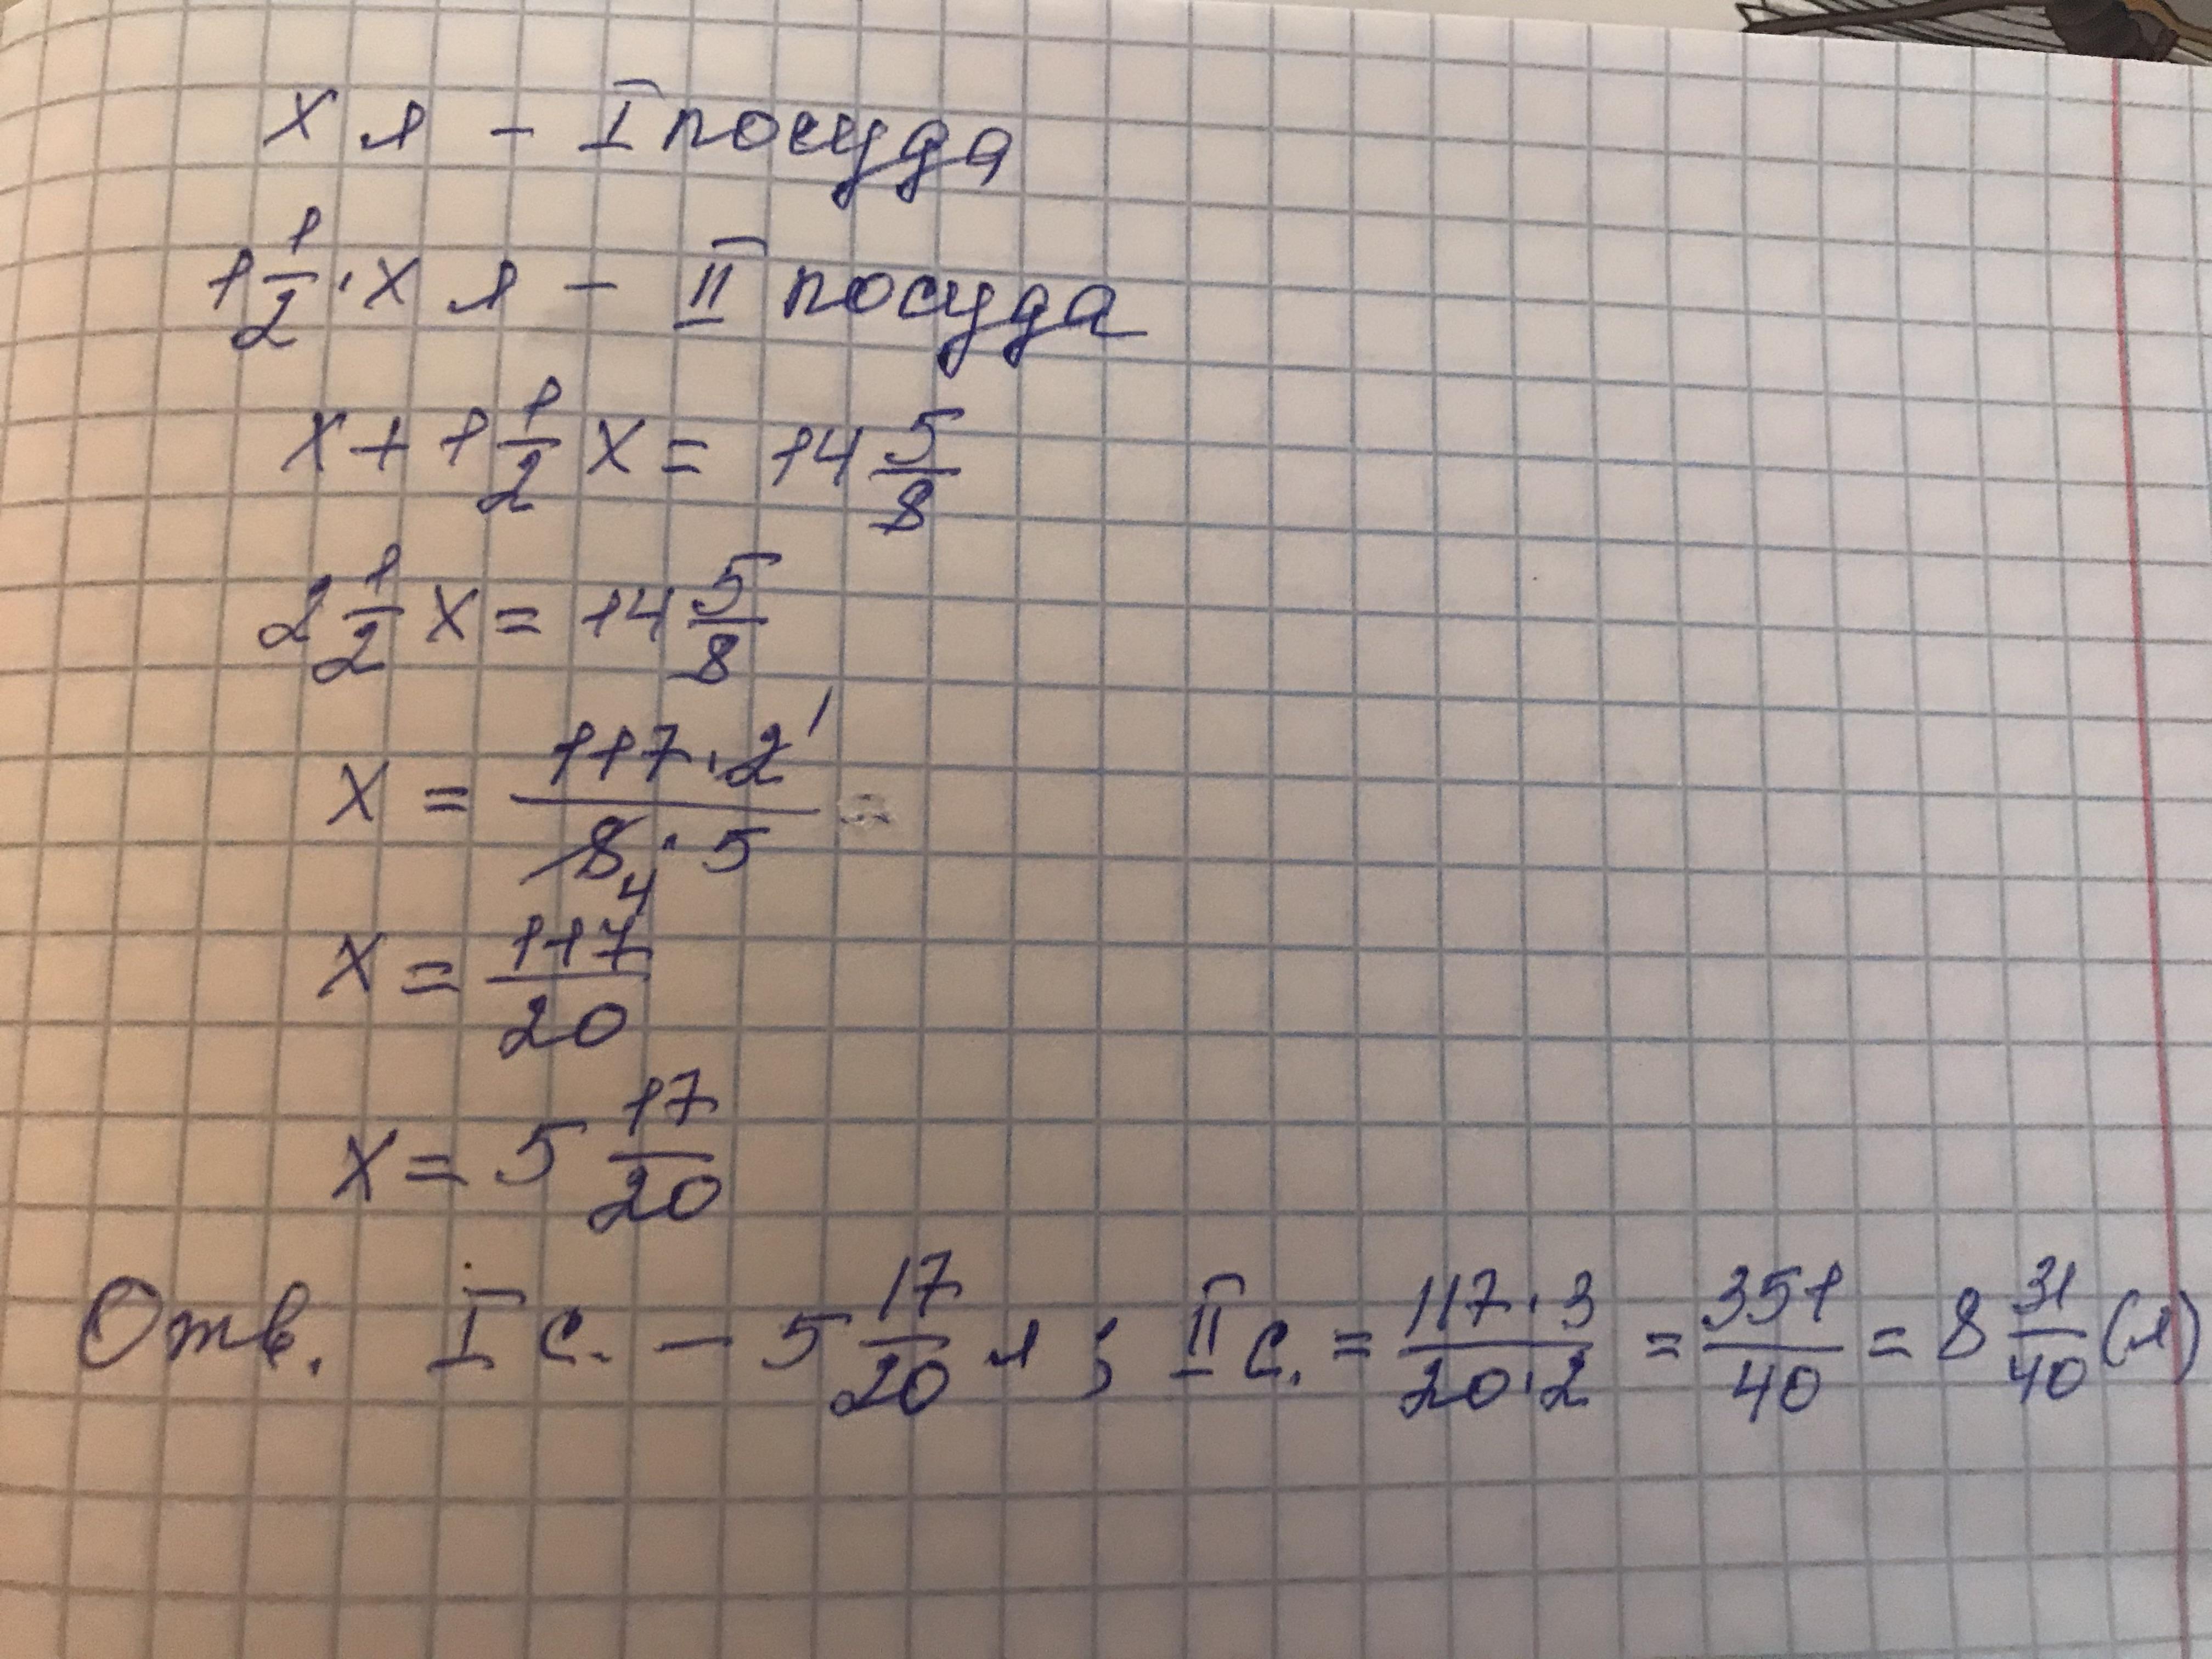 x л - I посуда
1 1/2 · x л - II посуда
x + 1 1/2 x = 14 5/8
2 1/2 x = 14 5/8
x = 117 · 2 1 / 8 4 · 5
x = 117/20
x = 5 17/20
Отв. I с. - 5 17/20 л ; II с. = 117 · 3 / 20 · 2 = 351/40 = 8 31/40 (л)